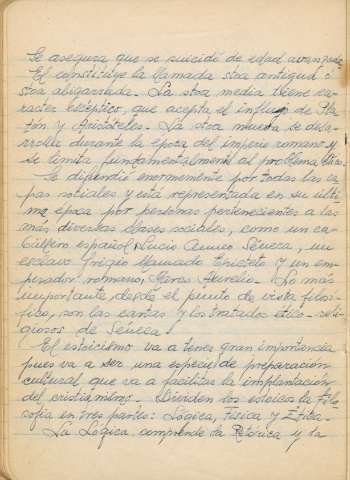 Se asegura que se suicidó de edad avanzada.
El constituye la llamada stoa antigua ó
stoa abigarrada. La stoa media tiene ca-
racter escéptico, que acepta el influjo de Pla-
tón y Aristóteles. La stoa nueva se desa-
rrolla durante la época del imperio romano y
se limita fundamentalment al problema ético.
Se difundió enormemente por todas las ca-
pas sociales y está representada en su últi-
ma época por personas pertenecientes a las
más diversas clases sociales, como un ca-
español Lucio Anneo Séneca, un
esclavo frigio llamado Epicteto y un em-
perador romano, Marco Aurelio. Lo más
importante, desde el punto de vista filosó-
fico, son las cartas y los tratados ético-reli-
giosos de Séneca.
El estoicismo va a tener gran importancia
pues va a ser una especie de preparación
cultural que va a facilitar la implantación
del cristianismo. Dividen los estoicos la Filo-
sofia en tres partes: Lógica, Física y Ética.
La Lógica comprende la Retórica y la